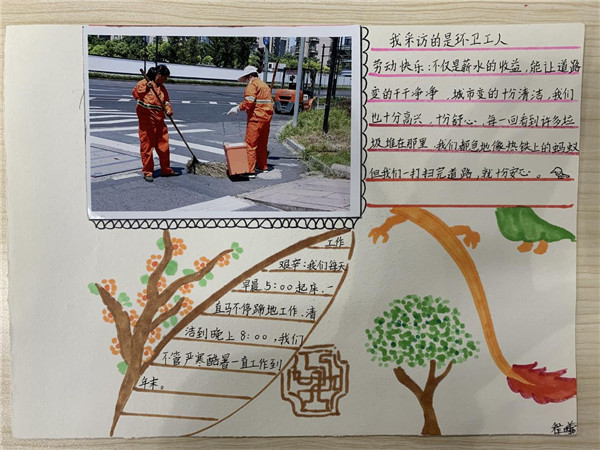 我采访的是环卫工人
劳动快乐:不仅是薪水的收益,能让道路
变的干干净净,城市变的十分清洁,我们
也十分高兴,十分舒心。每一回看到许多垃
圾堆在那里,我们都急地像热铁上的蚂蚁
但我们一打扫完道路,就十分安心。
工作
艰辛:我们每天
早晨5:00起床,一
直马不停蹄地工作.清
洁到晚上8:00,我们
不管严寒酷暑一直工作到
年末。